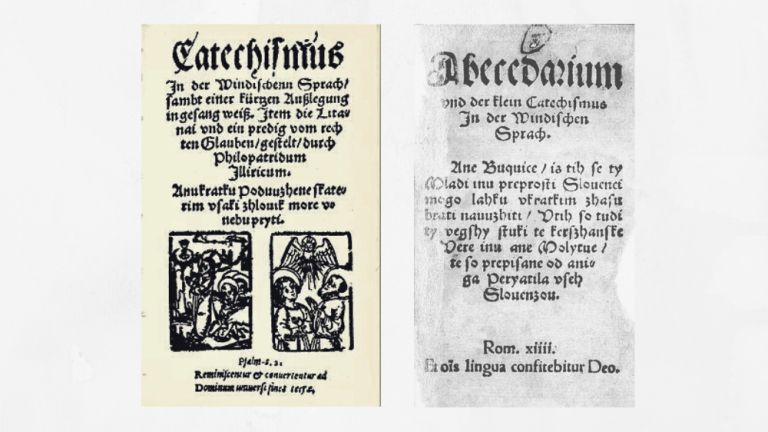 Catechismus
In der Windischenn Sprach/
sambt einer kürtzen Außlegung
in gesang weiß. Item die Lita-
nai vnd ein predig vom rech
ten Glauben/gestelt/durch
Philopatridum
Illiricum.
Anu kratku Poduuzhene skate-
rim vsaki zhlouik more vo
nebu pryti.
Psalm.
Reminiscentur & conuertentur ad
Dominum vniuersi fines
Abecedarium
vnd der klein Catechismus
In der Windischen
Sprach.
Ane Buquice/ is tih se ty
Mladi inu preprosti Slouenci
mogo lahku vkratkim zhasu
brati nauuzhiti/ Vtih so tudi
ty vegshy stuki te kerszhanske
Vere inu ane Molytue/
te so prepisane od ani-
ga Peryatila vseh
Slouenzou.
Rom. xiiii.
Et oīs lingua confitebitur Deo.